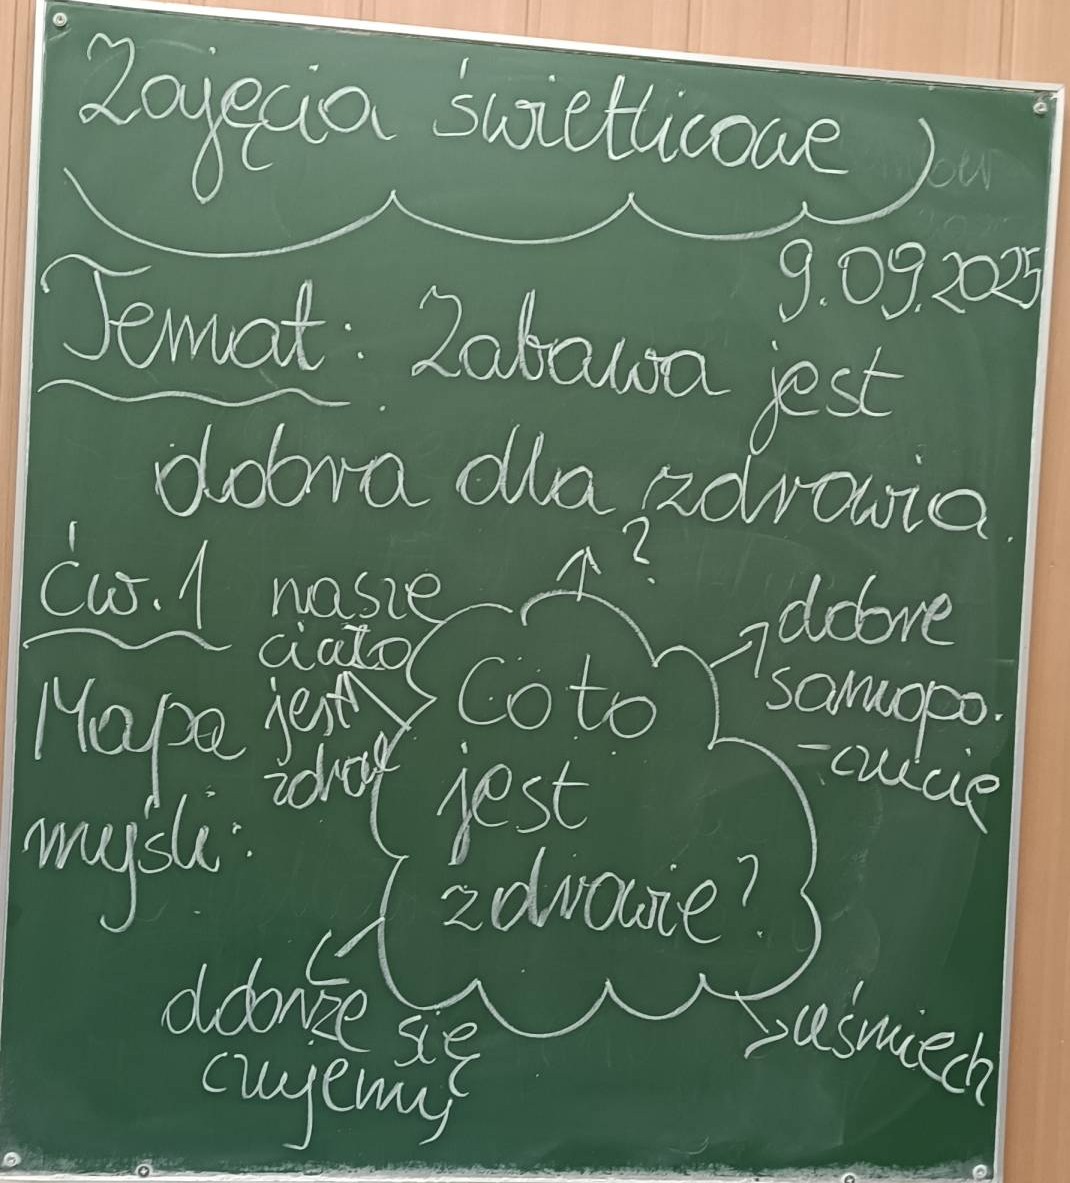 Zajęcia świetlicowe
9.09.2025
Temat: Zabawa jest
dobra dla zdrowia.
Ćw. 1
Mapa
myśli:
nasze
ciało
jest
zdrowe
?
dobre
samopo-
-czucie
Co to
jest
zdrowie?
dobrze się
czujemy
uśmiech